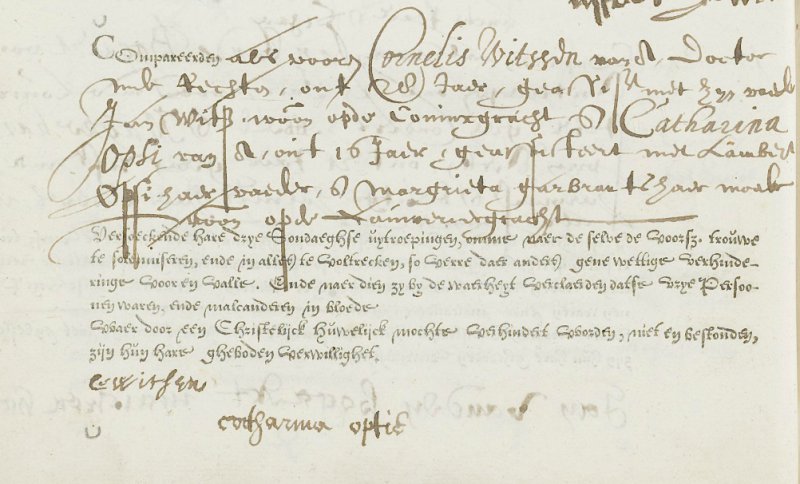 Compareerden als voorn Cornelis Witssen van A. Doctor
inde Rechten, out 28 Jaer, geassist met zijn vaeder
Jan Witss woon opde Coninxgracht & Catharina
Opsi van A. out 16 Jaer, geassisteert met Lambert
Opsi haer vaeder, & Margrieta garbrants haer moeder
woon opde Lauweriergracht
Versoeckende hare drye Sondaeghse uytroepingen, omme naer de selve de voorsz. trouwe
te solemniseren, ende in alles te voltrecken, so verre daer anders geene wettige verhinde-
ringe voor en valle. Ende naer dien zy by de waerheyt verclaerden datse vrye Persoo-
nen waren, ende malcanderen in bloede
Waer door een Christelijck Huwelijck mochte verhindert worden, niet en bestonden,
zijn hun hare gheboden verwillighet.
CWitsen
catharina optie